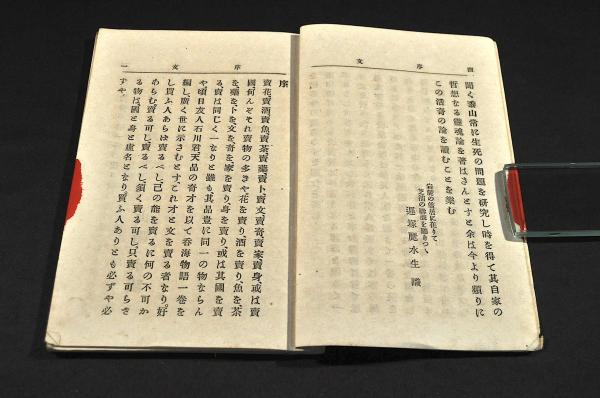 四
序文
聞く黍山常に生死の問題を研究し時を得て其自家の
哲想なる靈魂論を著はさんとすと余は今より頻りに
この活奇の論を讀むことを樂む
遲塚麗水生 識
序文
一
序
賣花、賣酒、賣魚、賣茶、賣藥、賣卜、賣文、賣奇、賣家、賣身、或は賣
國、何んぞそれ賣物の多きや花を賣り、酒を賣り、魚を、茶
を、藥を、卜を、文を、奇を、家を賣り、身を賣り、或は其國を賣
る賣は同じく一なりと雖も其品豈に同一の物ならん
や頃日友人石川君、天品の奇才を以て呑海物語一卷を
編し、廣く世に示さむとす、これ才と文を賣る者なり。好
し買ふ人あらば賣るべし、己の能を賣るに何の不可か
あらむ、賣る可し、賣るべし、須く賣る可し、只賣る可らさ
る物は、國と身と虛名となり買ふ人ありとも必ずや必
ずや